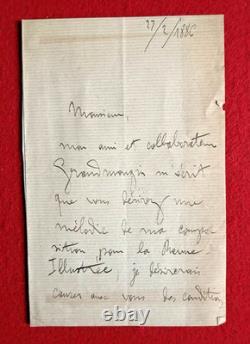 27/2/1886
Monsieur,
mon ami et collaborateur
Grandmougin m'écrit
que vous désirez une
mélodie de ma compo
sition, pour la Revue
Illustrée, je désirerais
causer avec vous des conditions
ebth.com